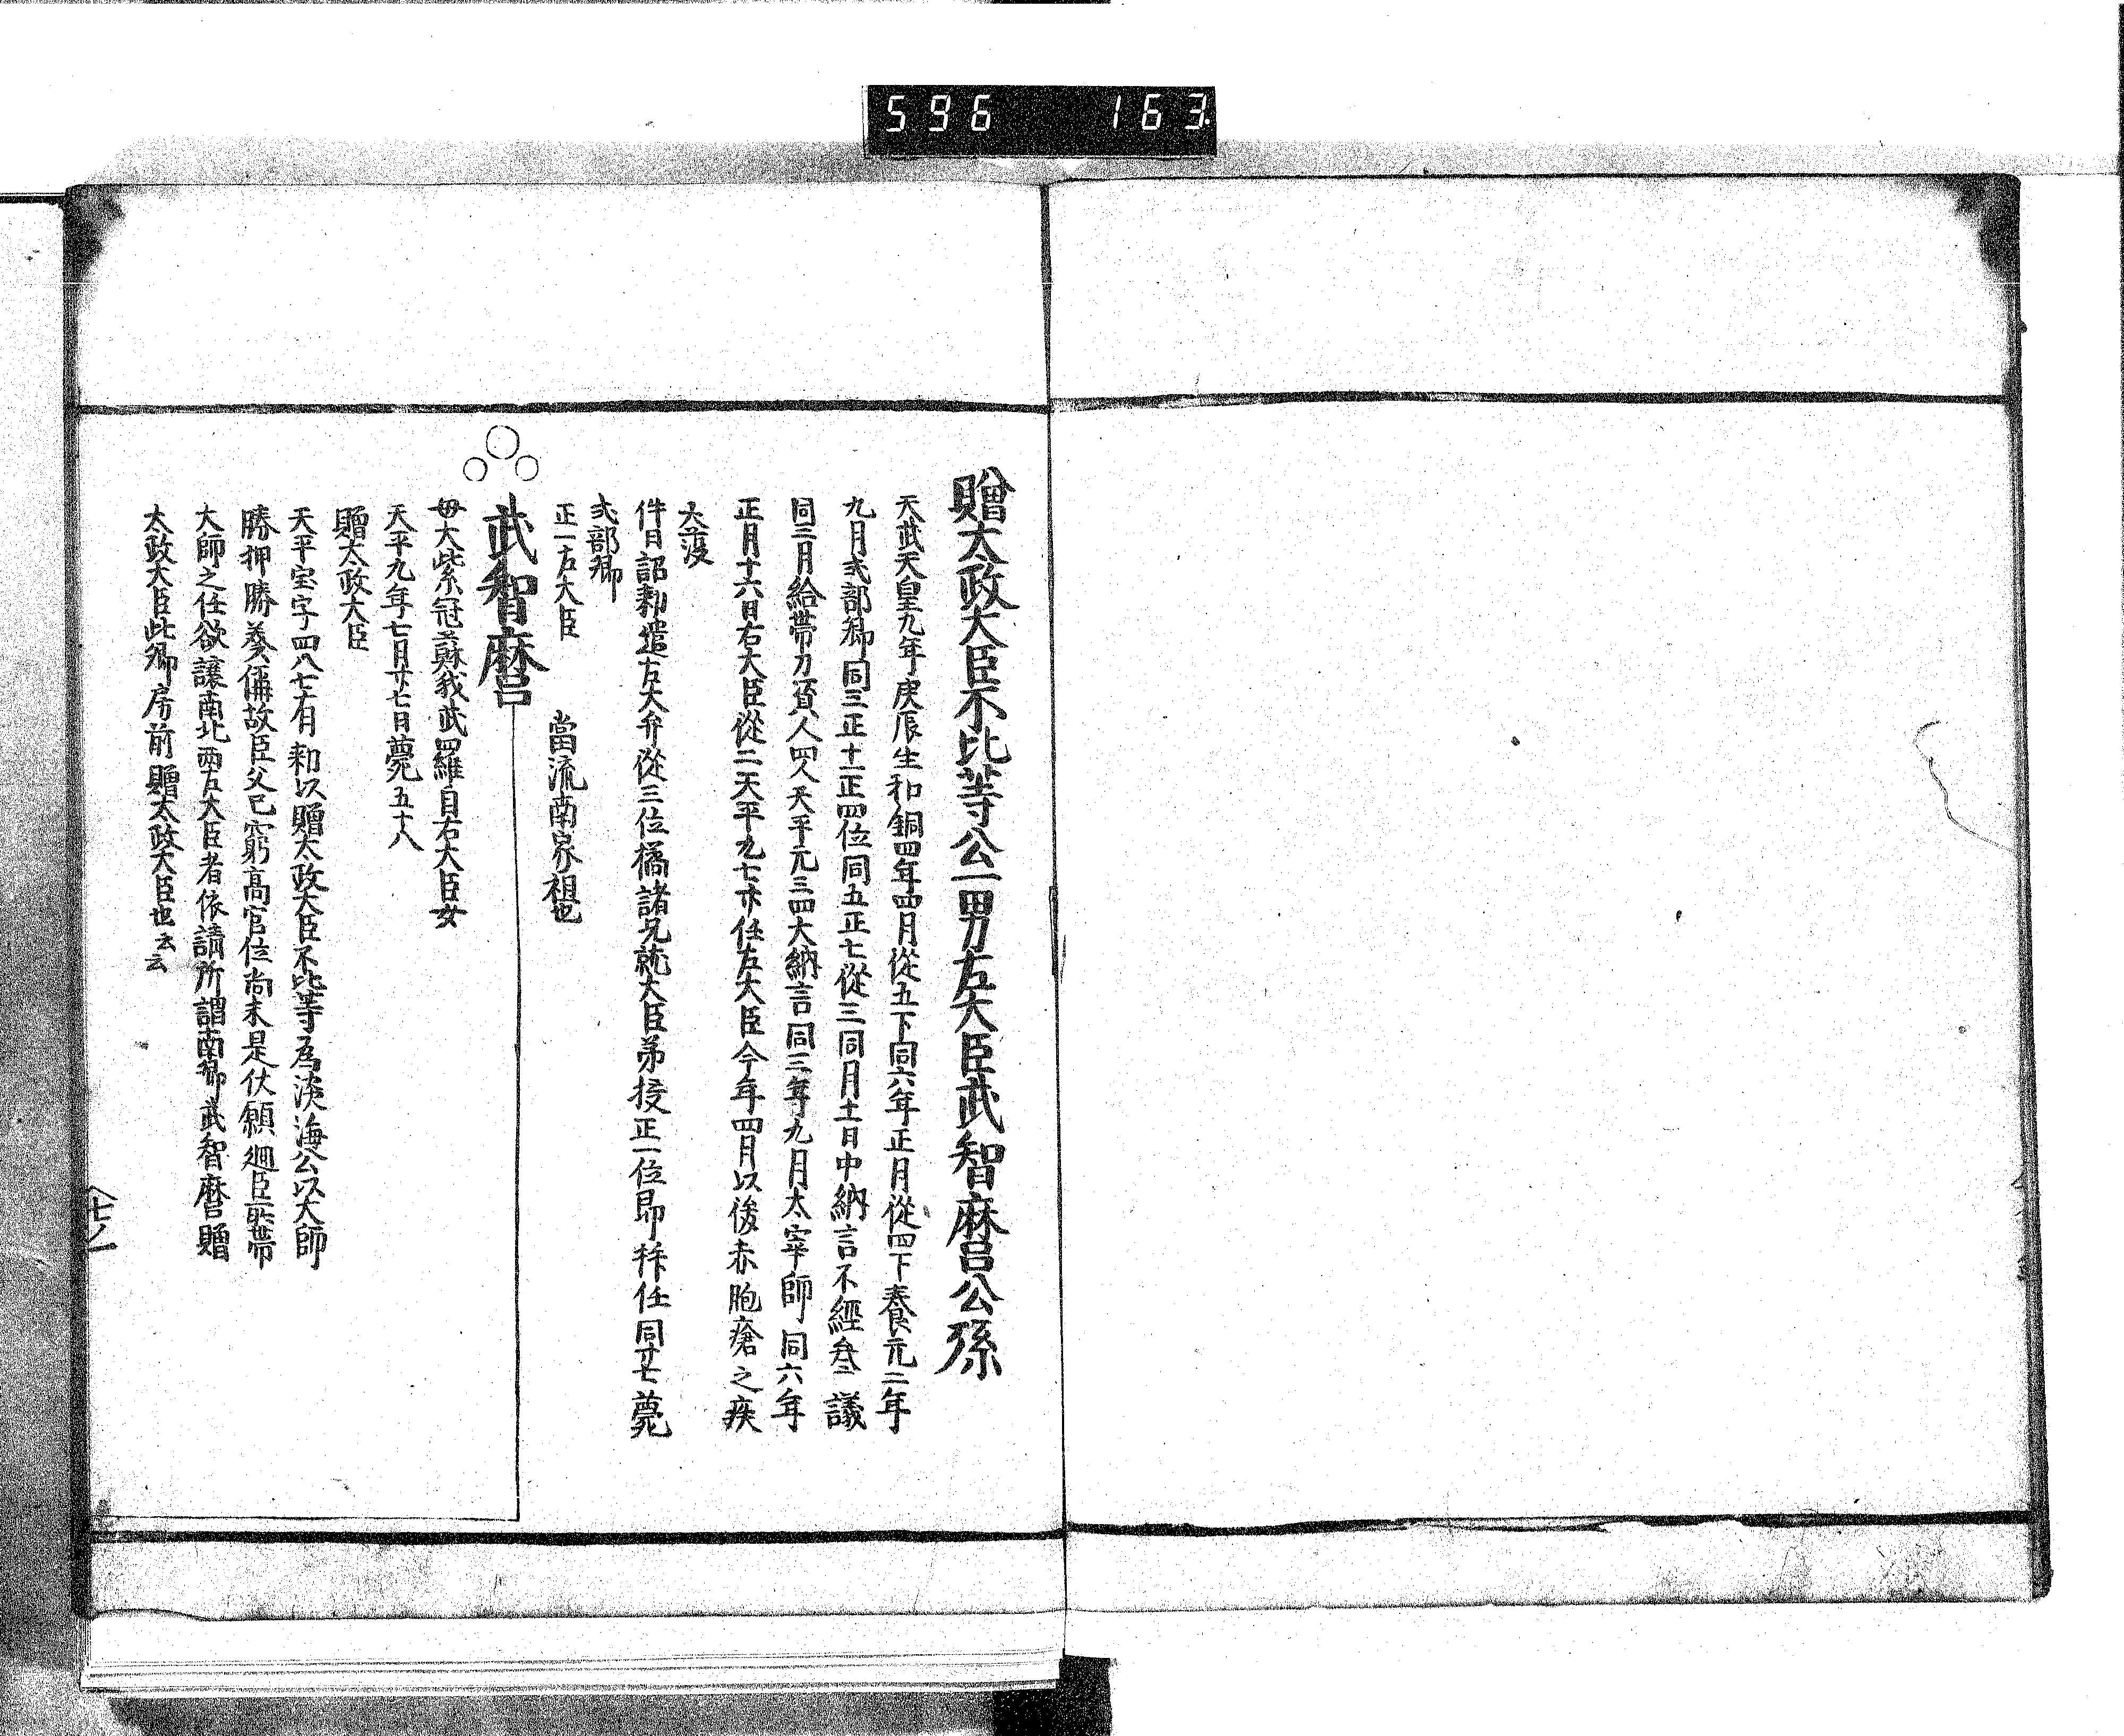 596 163
贈太政大臣不比等公一男左大臣武智麻呂公孫
天武天皇九年庚辰生和銅四年四月從五下同六年正月從四下養元二年
九月式部卿同三正十一正四位同五正七從三同月土日中納言不經叄議
同三月給帶刀資人四人天平元三四大納言同三年九月太宰師同六年
正月十六日右大臣從二天平九七廿任左大臣今年四月以後赤胞瘡之疾
大漫
件日詔勅遣左大弁從三位橘諸兄就大臣弟授正一位即拜任同廿七薨
式部卿
正一左大臣
當流南家祖也
武智麿
母大紫冠蘇我武羅自右大臣女
天平九年七月廿七日薨五十八
贈太政大臣
天平宝字四八七有勅以贈太政大臣不比等為淡海公以大師
勝押勝奏偁故臣父已窮高官位尚未是伏願廻臣所帶
大師之任欲讓南北兩左大臣者依請所謂南卿武智麿贈
太政大臣此卿房前贈太政大臣也云云
七ノ一